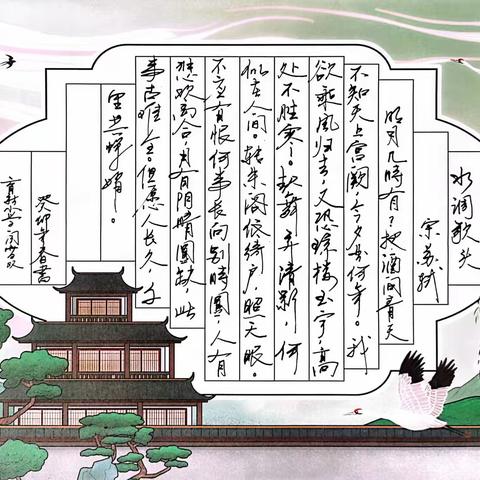 水调歌头
宋 苏轼
明月几時有？把酒问青天
不知天上宫阙，今夕是何年。我
欲乘風归去，又恐琼楼玉宇，高
处不胜寒！起舞弄清影，何
似在人间。转朱阁低绮户，照无眠。
不应有恨何事長向别時圓，人有
悲欢离合，月有阴晴圆缺，此
事古难全。但愿人长久，千
里共婵娟。
癸卯年春書